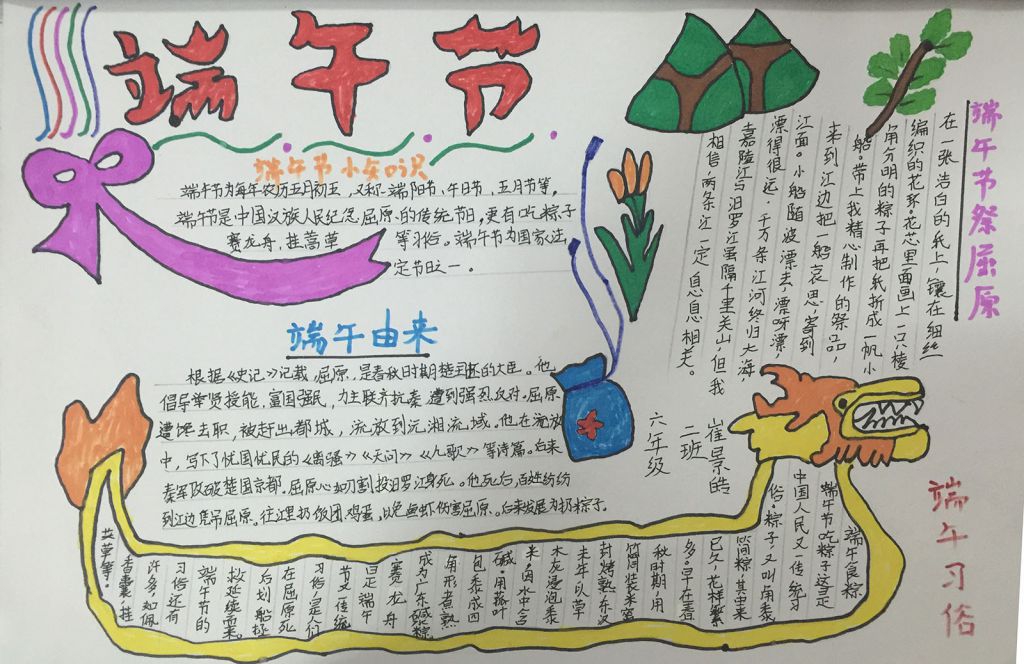 端午节
端午节小知识
端午节为每年农历五月初五，又称端阳节、午日节、五月节等。
端午节是中国汉族人民纪念屈原的传统节日，更有吃粽子
赛龙舟，挂蒿草 等习俗。端午节为国家法
定节日之一。
端午由来
根据《史记》记载，屈原，是春秋时期楚王怀的大臣。他
倡导举贤授能，富国强民，力主联齐抗秦，遭到强烈反对。屈原
遭馋去职，被赶出都城，流放到沅湘流域。他在流放
中，写下了忧国忧民的《离骚》《天问》《九歌》等诗篇。后来
秦军攻破楚国京都，屈原心如刀割投汨罗江身死。他死后，百姓纷纷
到江边凭吊屈原。往江里扔饭团，鸡蛋，以免鱼虾伤害屈原。后来发展为扔粽子。
端午节祭屈原
在一张洁白的纸上，镶在细丝
编织的花环。花芯里面画上一只棱
角分明的粽子再把纸折成一帆小
船。带上我精心制作的祭品，
来到江边把一船哀思，寄到
江面。小船随波漂去，漂呀漂，
漂得很远，千万条江河终归大海，
嘉陵江与汨罗江虽隔千里关山，但我
相信，两条江一定息息相关。
六年级
二班
崔景皓
端午习俗
端午食粽
端午节吃粽子这是
中国人民又一传统习
俗。粽子，又叫角黍
筒粽，其由来
已久，花样繁
多。早在春
秋时期，用
筒筒装米密
封烤熟，东汉
末年，以草
木灰浸泡黍
米，因水中含
碱，用菰叶
包黍成四
角形，煮熟
成为广东碱粽
赛龙舟
曰是端午
节又传统
习俗，是人们
在屈原死
后划船拯
救延续而来。
端午节的
习俗还有
许多，如佩
香囊，挂
艾草等。